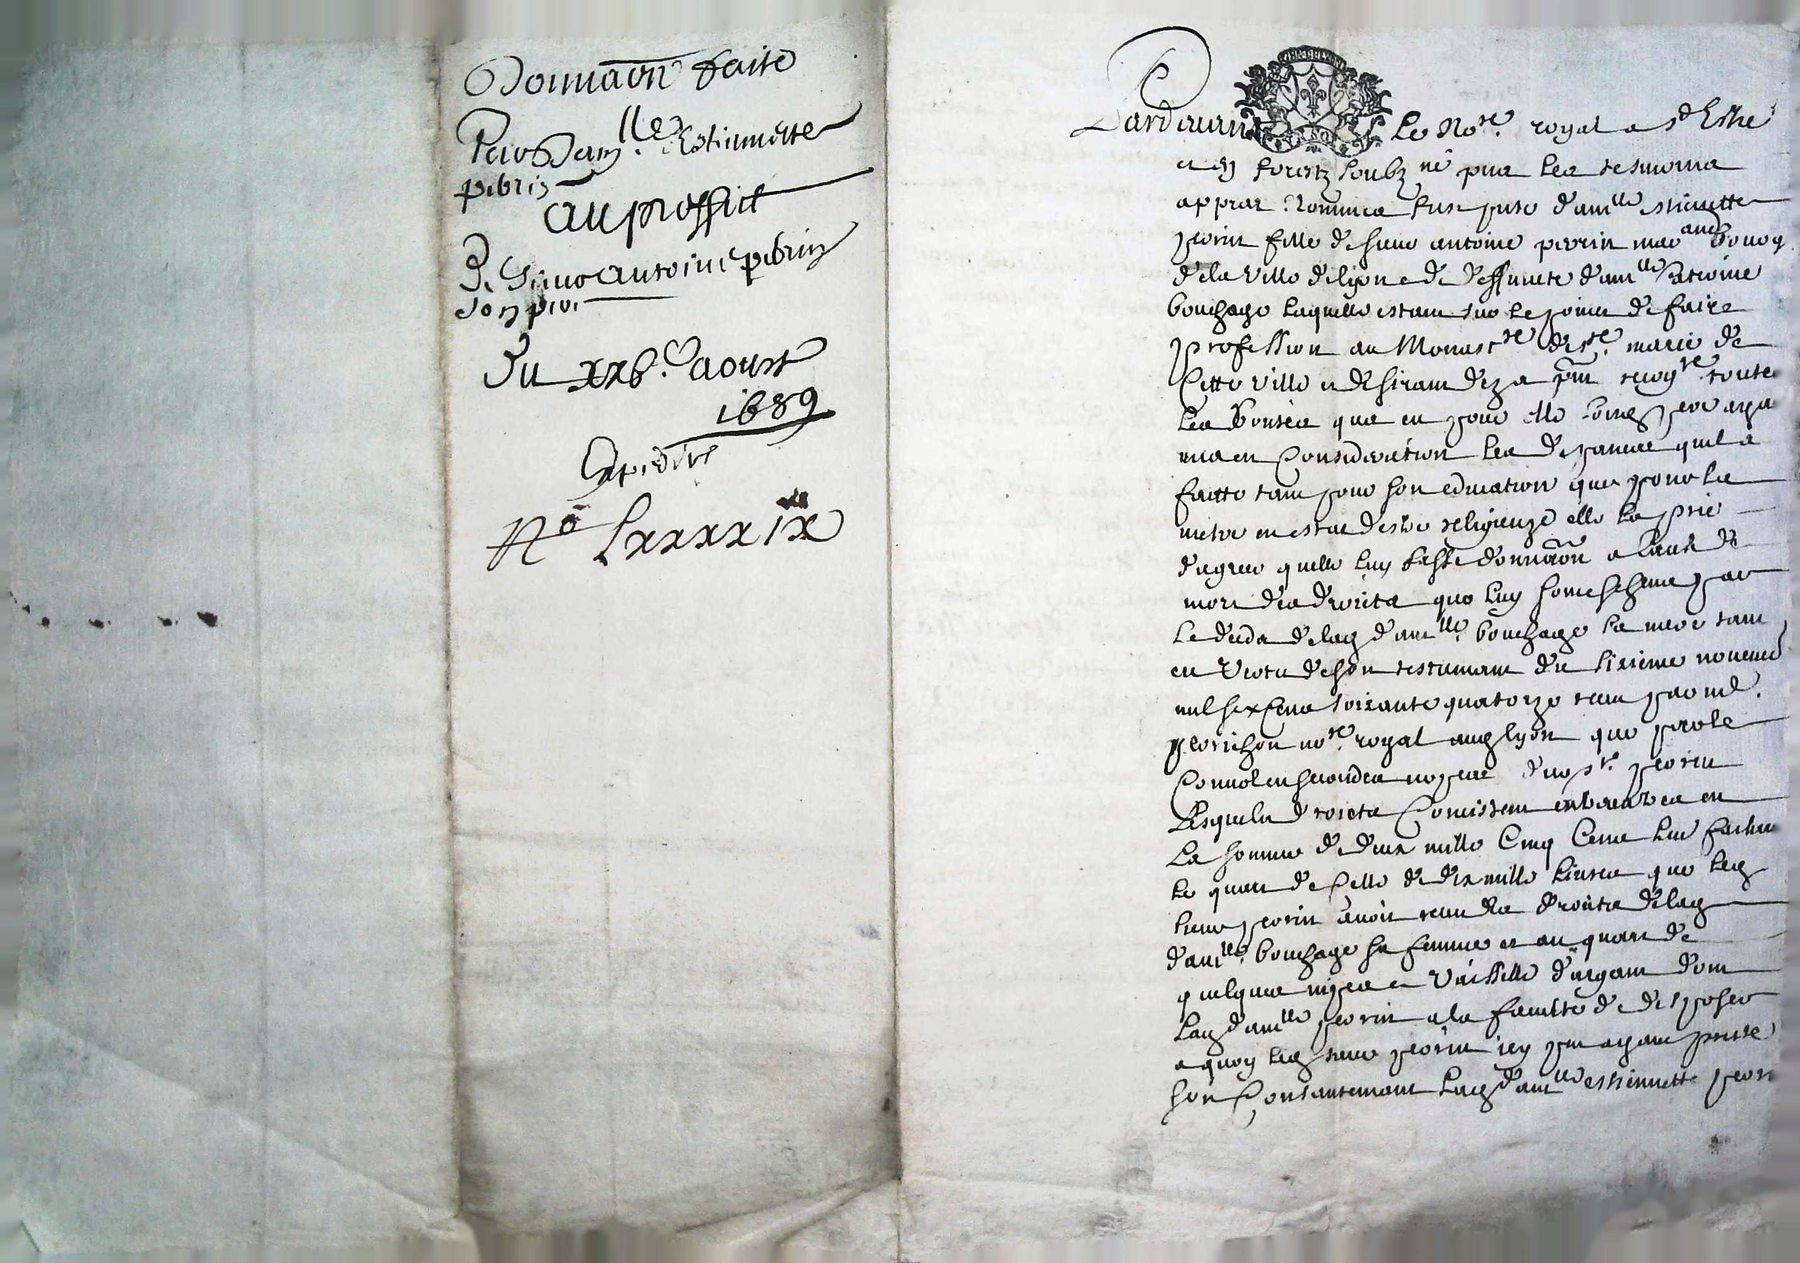 Donnaōn faite
Par Dam.lle Estiennette
pebrin
Au proffict
De Sieur antoine pebrin
son pere
Du xxb.e aoust
1689
Expediée
N° Lxxxxix
Pardevant Le No.re royal a St Esne
et en forestz soubz.né pnt les tesmoins
appres nommes fust pnte dam.lle estiennette
perin fille de sieur antoine perrin marchand bourg
de la ville de lyon et de deffuncte dam.lle
bouchage laquelle estant sur le point de faire
profession au Monast.re de Ste marie de
Cette ville et desirant recog.re toute
les bontés que eu pour elle son pere ayant
mis en Consideration les depances quil a
faitte tant pour son education que pour la
metre en estat destre religieuze elle la prie
dagreer quelle luy fasse donnaōn a cause de
mort des droits que luy sont escheus par
le deceds de lad dam.lle bouchage sa mere tant
en vertu de son testament du sixieme novemb
mil six cens soixante quatorze receu par me.
perrichon no.re royal aud lyon que par le
Convol en secondes nopces dud s.r perin
Lesquels droicts Consistent en
La somme de deux mille Cinq Cens liv faisant
le quart de celle de dix mille livres que led
sieur perin avoit receu des droits de lad
dam.lle bouchage sa femme et au quart de
quelques nipes et vaisselle dargent dont
lad dam.lle perin a la faculté de disposer
a quoy led sieur perin icy pnt ayant preste
son Consantement lad dam.lle estiennette perin